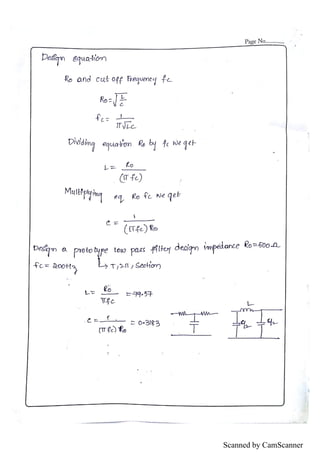 Page No.
Design equation
Ro and cut off Frequency fc
Ro = √L/C
fc = 1/π√LC
Dividing equation Ro by fc we get
L = Ro/(π fc)
Multiplying eq Ro fc we get
C = 1/(πfc) Ro
Design a prototype low pass filter design impedance Ro=600Ω
fc = 200Hz → T, π, Section
L = Ro/πfc
C = 1/(π fc) Ro = 0.3183
L
C/2
C/2
Scanned by CamScanner